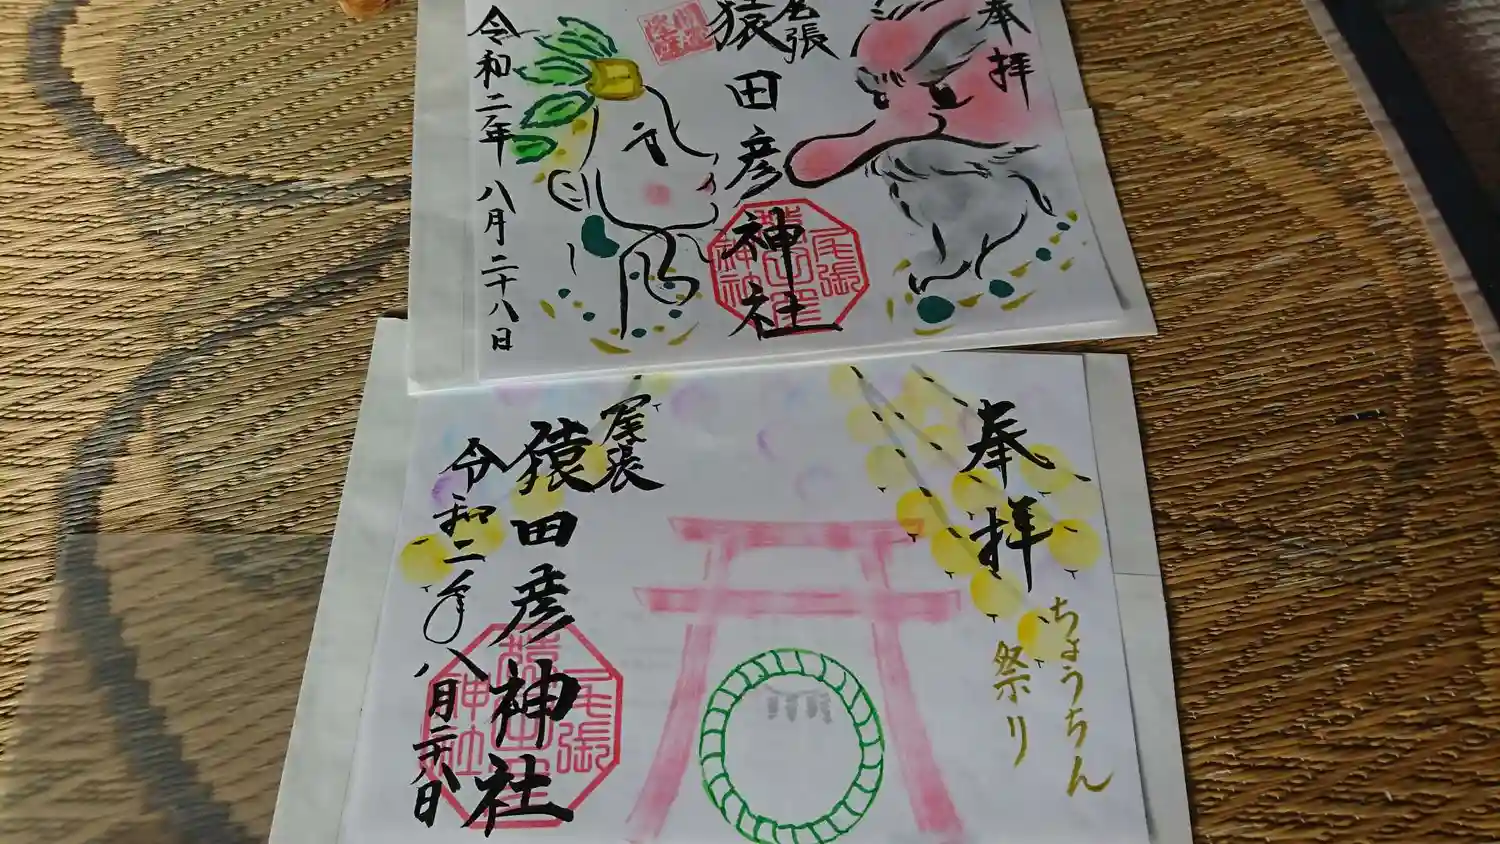 奉拝
尾張
猿田彦神社
尾張
神社
令和二年 八月二十八日
奉拝
ちょうちん
祭り
尾張
猿田彦神社
尾張
神社
令和二年八月二十八日